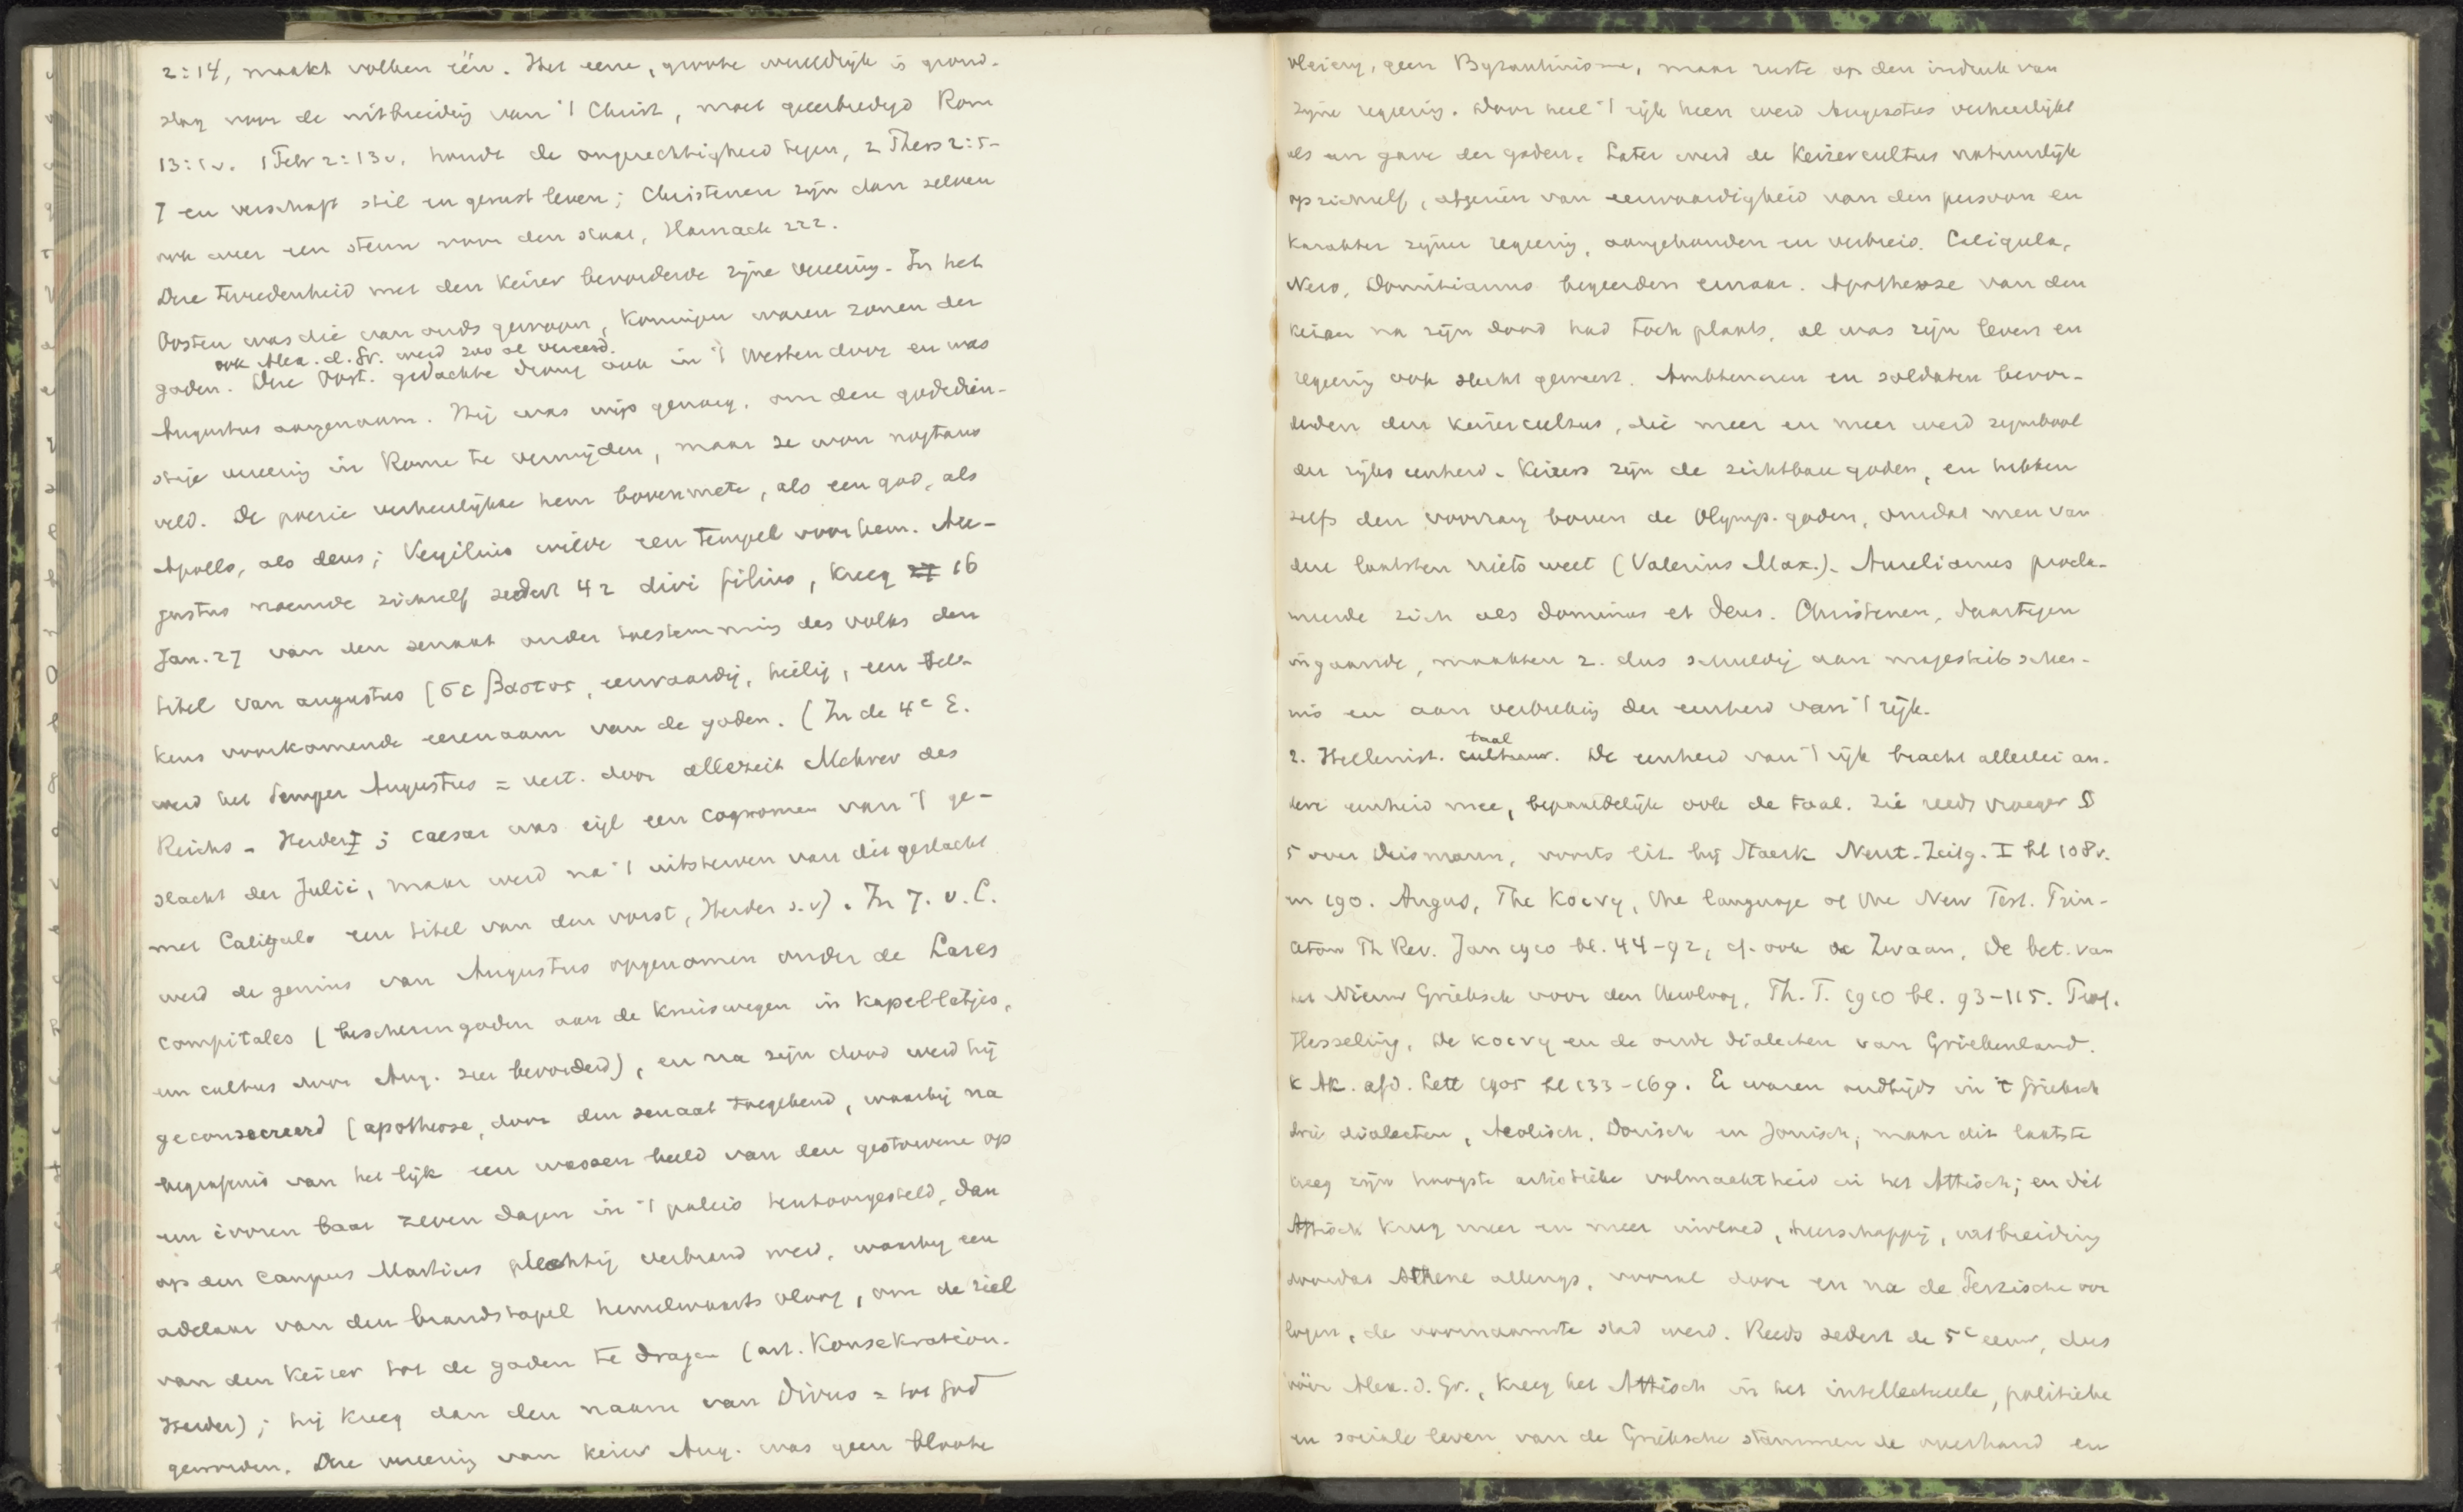 2:14, maakt volken één. Het eene, groote wereldrijk is grond-
slag voor de uitbreiding van 't Christ, moet geeerbiedigd Rom
13:1v. 1 Petr 2:13v. houdt de ongerechtigheid tegen, 2 Thess 2:5-
7 en verschaft stil en gerust leven; Christenen zijn dan zelven
ook weer een steun voor den staat, Harnack 222.
Die tevredenheid met den Keizer bevorderde zijne vereering. In het
Oosten was die van ouds gewoon, Koningen waren zonen der
ook Alex. d. Gr. werd zoo al vereerd.
goden. Die Oost. gedachte drong ook in 't Westen door en was
Augustus aangenaam. Hij was wijs genoeg, om deze godsdien-
stige vereering in Rome te vermijden, maar ze won nogtans
veld. De poezie verheerlijkte hem bovenmate, als een god, als
Apollo, als deus; Vergilius wilde een tempel voor hem. Au-
gustus noemde zichzelf sedert 42 divi filius, kreeg 27 16
Jan. 27 van den senaat onder toestemming des volks den
titel van augustus (σεβαστος, eerwaardig, heilig, een tel-
kens voorkomende eerenaam van de goden. (In de 4e E.
werd het Semper Augustus = vert. door allezeit Mehrer des
Reichs - Herder I; Caesar was eigl een cognomen van 't ge-
slacht der Julii, maar werd na 't uitsterven van dit geslacht
met Caligula een titel van den vorst, Herder s.v). In 7. v. C.
werd de genius van Augustus opgenomen onder de Lares
compitales (beschermgoden aan de kruiswegen in kapelletjes,
een cultus door Aug. zeer bevorderd), en na zijn dood werd hij
geconsecreerd (apotheose, door den senaat toegekend, waarbij na
begrafenis van het lijk een wassen beeld van den gestorvene op
een ivoren baar zeven dagen in 't paleis tentoongesteld, dan
op den campus Martius plechtig verbrand werd, waarbij een
adelaar van den brandstapel hemelwaarts vloog, om de ziel
van den Keizer tot de goden te dragen (art. Konsekration.
Herder); hij kreeg dan den naam van Divus = tot God
geworden. Die vereering van keizer Aug. was geen bloote
vleierij, geen Byzantinisme, maar rustte op den indruk van
zijne regeering. Door heel 't rijk heen werd Augustus verheerlijkt
als een gave der goden. Later werd de Keizercultus natuurlijk
op zichzelf, afgezien van eerwaardigheid van den persoon en
karakter zijner regeering, aangehouden en verbreid. Caligula,
Nero, Domitianus begeerden ernaar. Apotheose van den
keizer na zijn dood had toch plaats, al was zijn leven en
regeering ook slecht geweest. Ambtenaren en soldaten bevor-
derden den keizercultus, die meer en meer werd symbool
der rijks eenheid. Keizers zijn de zichtbare goden, en hebben
zelfs den voorrang boven de Olymp. goden, omdat men van
deze laatsten niets weet (Valerius Max.). Aurelianus procla-
meerde zich als dominus et deus. Christenen, daartegen
ingaande, maakten z. dus schuldig aan majesteitsschen-
nis en aan verbreking der eenheid van 't rijk.
taal
2. Hellenist. cultuur. De eenheid van 't rijk bracht allerlei an-
dere eenheid mee, bepaaldelijk ook de taal. Zie reeds vroeger §
5 over Deismann, voorts lit. bij Staerk Neut. Zeitg. I bl 108v.
en 190. Angus, The Κοινη, the language of the New Test. Prin-
ceton Th Rev. Jan 1910 bl. 44-92, cf. ook de Zwaan, De bet. van
het Nieuw Grieksch voor den theoloog, Th. T. 1910 bl. 93-115. Prof.
Hesseling, De κοινη en de oude dialecten van Griekenland.
K Ak. afd. Lett 1905 bl 133-169. Er waren oudtijds in 't Grieksch
drie dialecten, Aeolisch, Dorisch en Jonisch, maar dit laatste
kreeg zijn hoogste artistieke volmaaktheid in het Attisch; en dit
Attisch kreeg meer en meer invloed, heerschappij, uitbreiding
doordat Athene allengs, vooral door en na de Perzische oor
logen, de voornaamste stad werd. Reeds sedert de 5e eeuw, dus
vóór Alex. d. Gr., kreeg het Attisch in het intellectueele, politieke
en sociale leven van de Grieksche stammen de overhand en